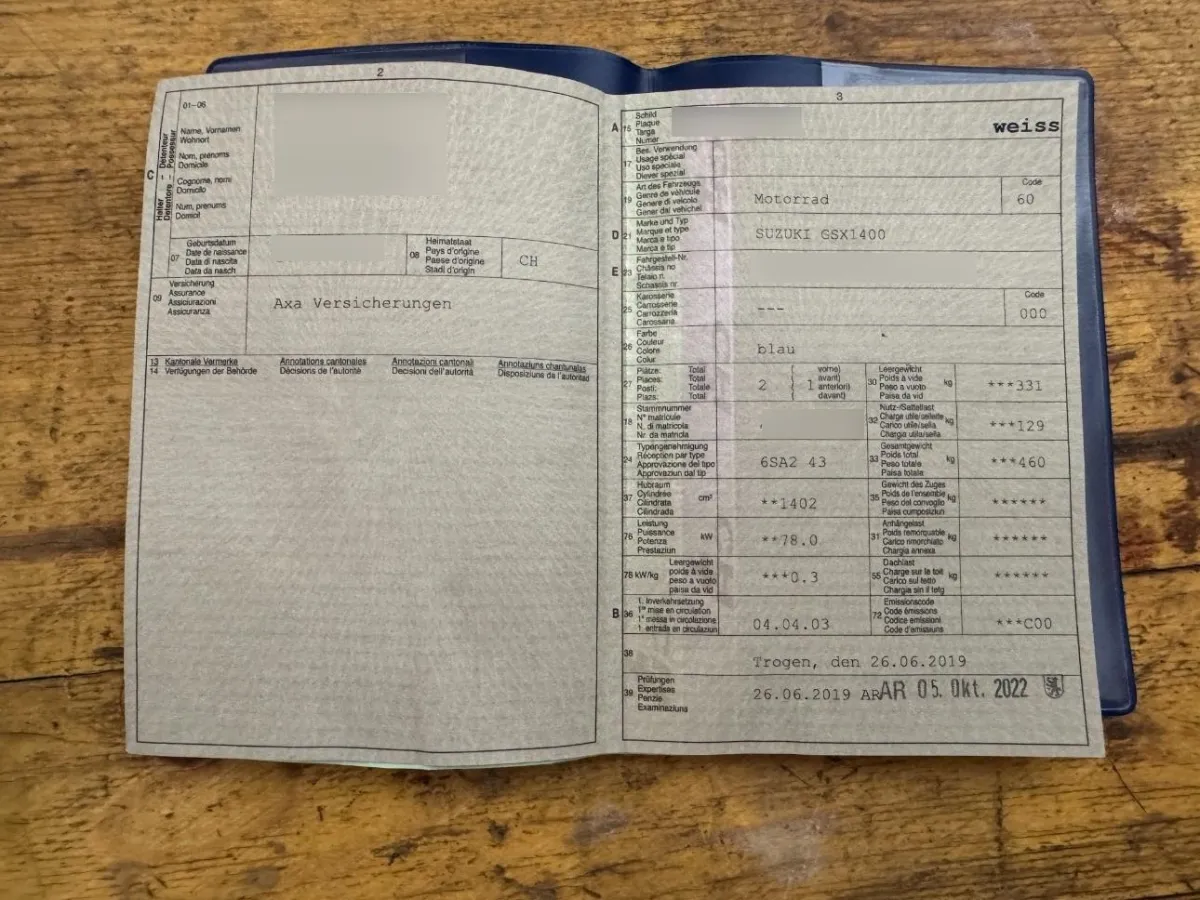 2
01–06
C
Halter - Détenteur
Detentore - Possessur
Name, Vornamen
Wohnort
Nom, prénoms
Domicile
Cognome, nomi
Domicilio
Num, prenums
Domicil
07
Geburtsdatum
Date de naissance
Data di nascita
Data da nasch
08
Heimatstaat
Pays d'origine
Paese d'origine
Stadi d'origin
CH
09
Versicherung
Assurance
Assicurazioni
Assicuranza
Axa Versicherungen
13 Kantonale Vermerke Annotations cantonales Annotazioni cantonali Annotaziuns chantunalas
14 Verfügungen der Behörde Décisions de l'autorité Decisioni dell'autorità Disposiziuns da l'autoritad
3
A
15
Schild
Plaque
Targa
Numer
weiss
17
Bes. Verwendung
Usage spécial
Uso speciale
Diever spezial
19
Art des Fahrzeugs
Genre de véhicule
Genere di veicolo
Gener dal vehichel
Motorrad
Code
60
D
21
Marke und Typ
Marque et type
Marca e tipo
Marca e tip
SUZUKI GSX1400
E
23
Fahrgestell-Nr.
Châssis no
Telaio n.
Schassis nr.
25
Karosserie
Carrosserie
Carrozzeria
Carossaria
---
Code
000
26
Farbe
Couleur
Colore
Colur
blau
27
Plätze: Total
Places: Total
Posti: Totale
Plazs: Total
2 ( 1
vorne)
avant)
anteriori)
davant)
30
Leergewicht
Poids à vide
Peso a vuoto
Paisa da vid
kg
***331
18
Stammnummer
N° matricule
N. di matricola
Nr. da matricla
32
Nutz-/Sattellast
Charge utile/sellette
Carico utile/sella
Chargia utila/sella
kg
***129
24
Typengenehmigung
Réception par type
Approvazione del tipo
Approvaziun dal tip
6SA2 43
33
Gesamtgewicht
Poids total
Peso totale
Paisa totala
kg
***460
37
Hubraum
Cylindrée
Cilindrata
Cilindrada
cm³
**1402
35
Gewicht des Zuges
Poids de l'ensemble
Peso del convoglio
Paisa cumposiziun
kg
******
76
Leistung
Puissance
Potenza
Prestaziun
kW
**78.0
31
Anhängelast
Poids remorquable
Carico rimorchiato
Chargia annexa
kg
******
78 kW/kg
Leergewicht
poids à vide
peso a vuoto
paisa da vid
***0.3
55
Dachlast
Charge sur le toit
Carico sul tetto
Chargia sin il tetg
kg
******
B
36
1. Inverkehrsetzung
1re mise en circulation
1a messa in circolazione
1. entrada en circulaziun
04.04.03
72
Emissionscode
Code émissions
Codice emissioni
Code d'emissiuns
***C00
38
Trogen, den 26.06.2019
39
Prüfungen
Expertises
Perizie
Examinaziuns
26.06.2019 AR
AR 05. Okt. 2022